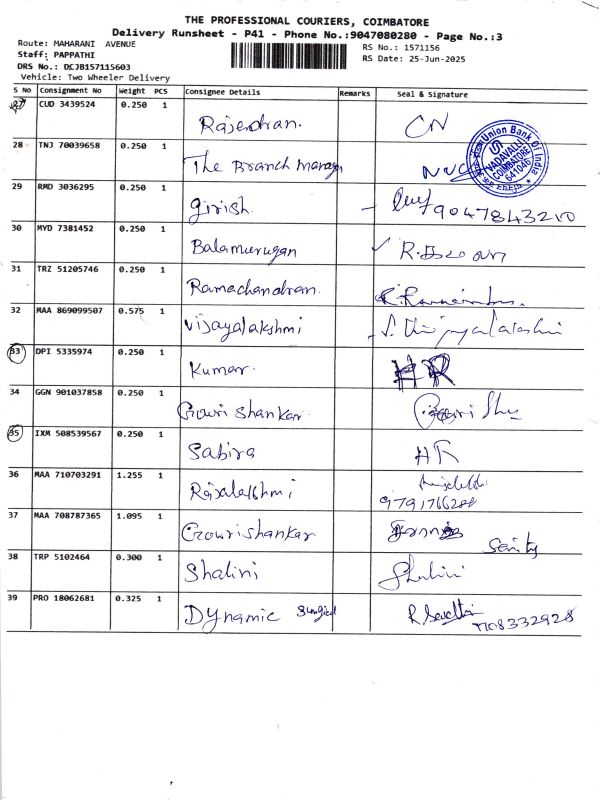 THE PROFESSIONAL COURIERS, COIMBATORE
Delivery Runsheet - P41 - Phone No.:9047080280 - Page No.:3
Route: MAHARANI AVENUE
RS No.: 1571156
Staff: PAPPATHI
RS Date: 25-Jun-2025
DRS No.: DCJB157115603
Vehicle: Two Wheeler Delivery
S No Consignment No Weight PCS Consignee Details Remarks Seal & Signature
27 CUD 3439524 0.250 1 Rajendran. CN
28 TNJ 70039658 0.250 1 The Branch Manager
Union Bank Of India
VADAVALLI
COIMBATORE
641046
29 RMD 3036295 0.250 1 girish. 9047843210
30 MYD 7381452 0.250 1 Balamurugan
31 TRZ 51205746 0.250 1 Ramachandran.
32 MAA 869099507 0.575 1 Vijayalakshmi
33 DPI 5335974 0.250 1 Kumar. HR
34 GGN 901037858 0.250 1 Gowri Shankar.
35 IXM 508539567 0.250 1 Sabira
36 MAA 710703291 1.255 1 Rajalakhmi 9791766288
37 MAA 708787365 1.095 1 Gowrishankar
38 TRP 5102464 0.300 1 Shalini Shalini
39 PRO 18062681 0.325 1 Dynamic Surgical